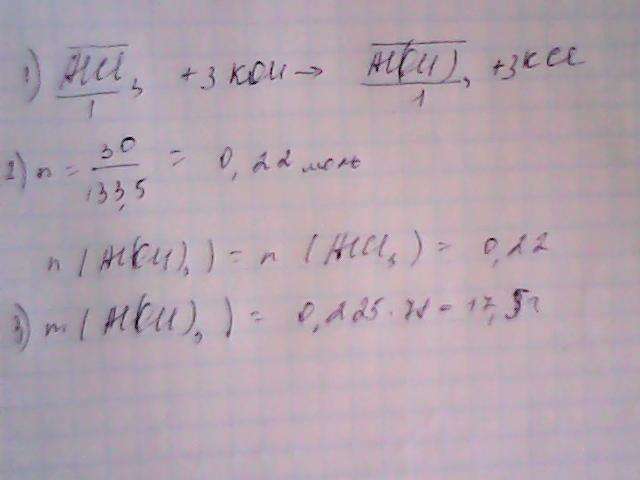 1) AlCl₃ + 3KOH → Al(OH)₃ + 3KCl
1 1
2) n = 30/133,5 = 0,22 моль
n (Al(OH)₃) = n (AlCl₃) = 0,22
3) m (Al(OH)₃) = 0,225 · 78 = 17,5г